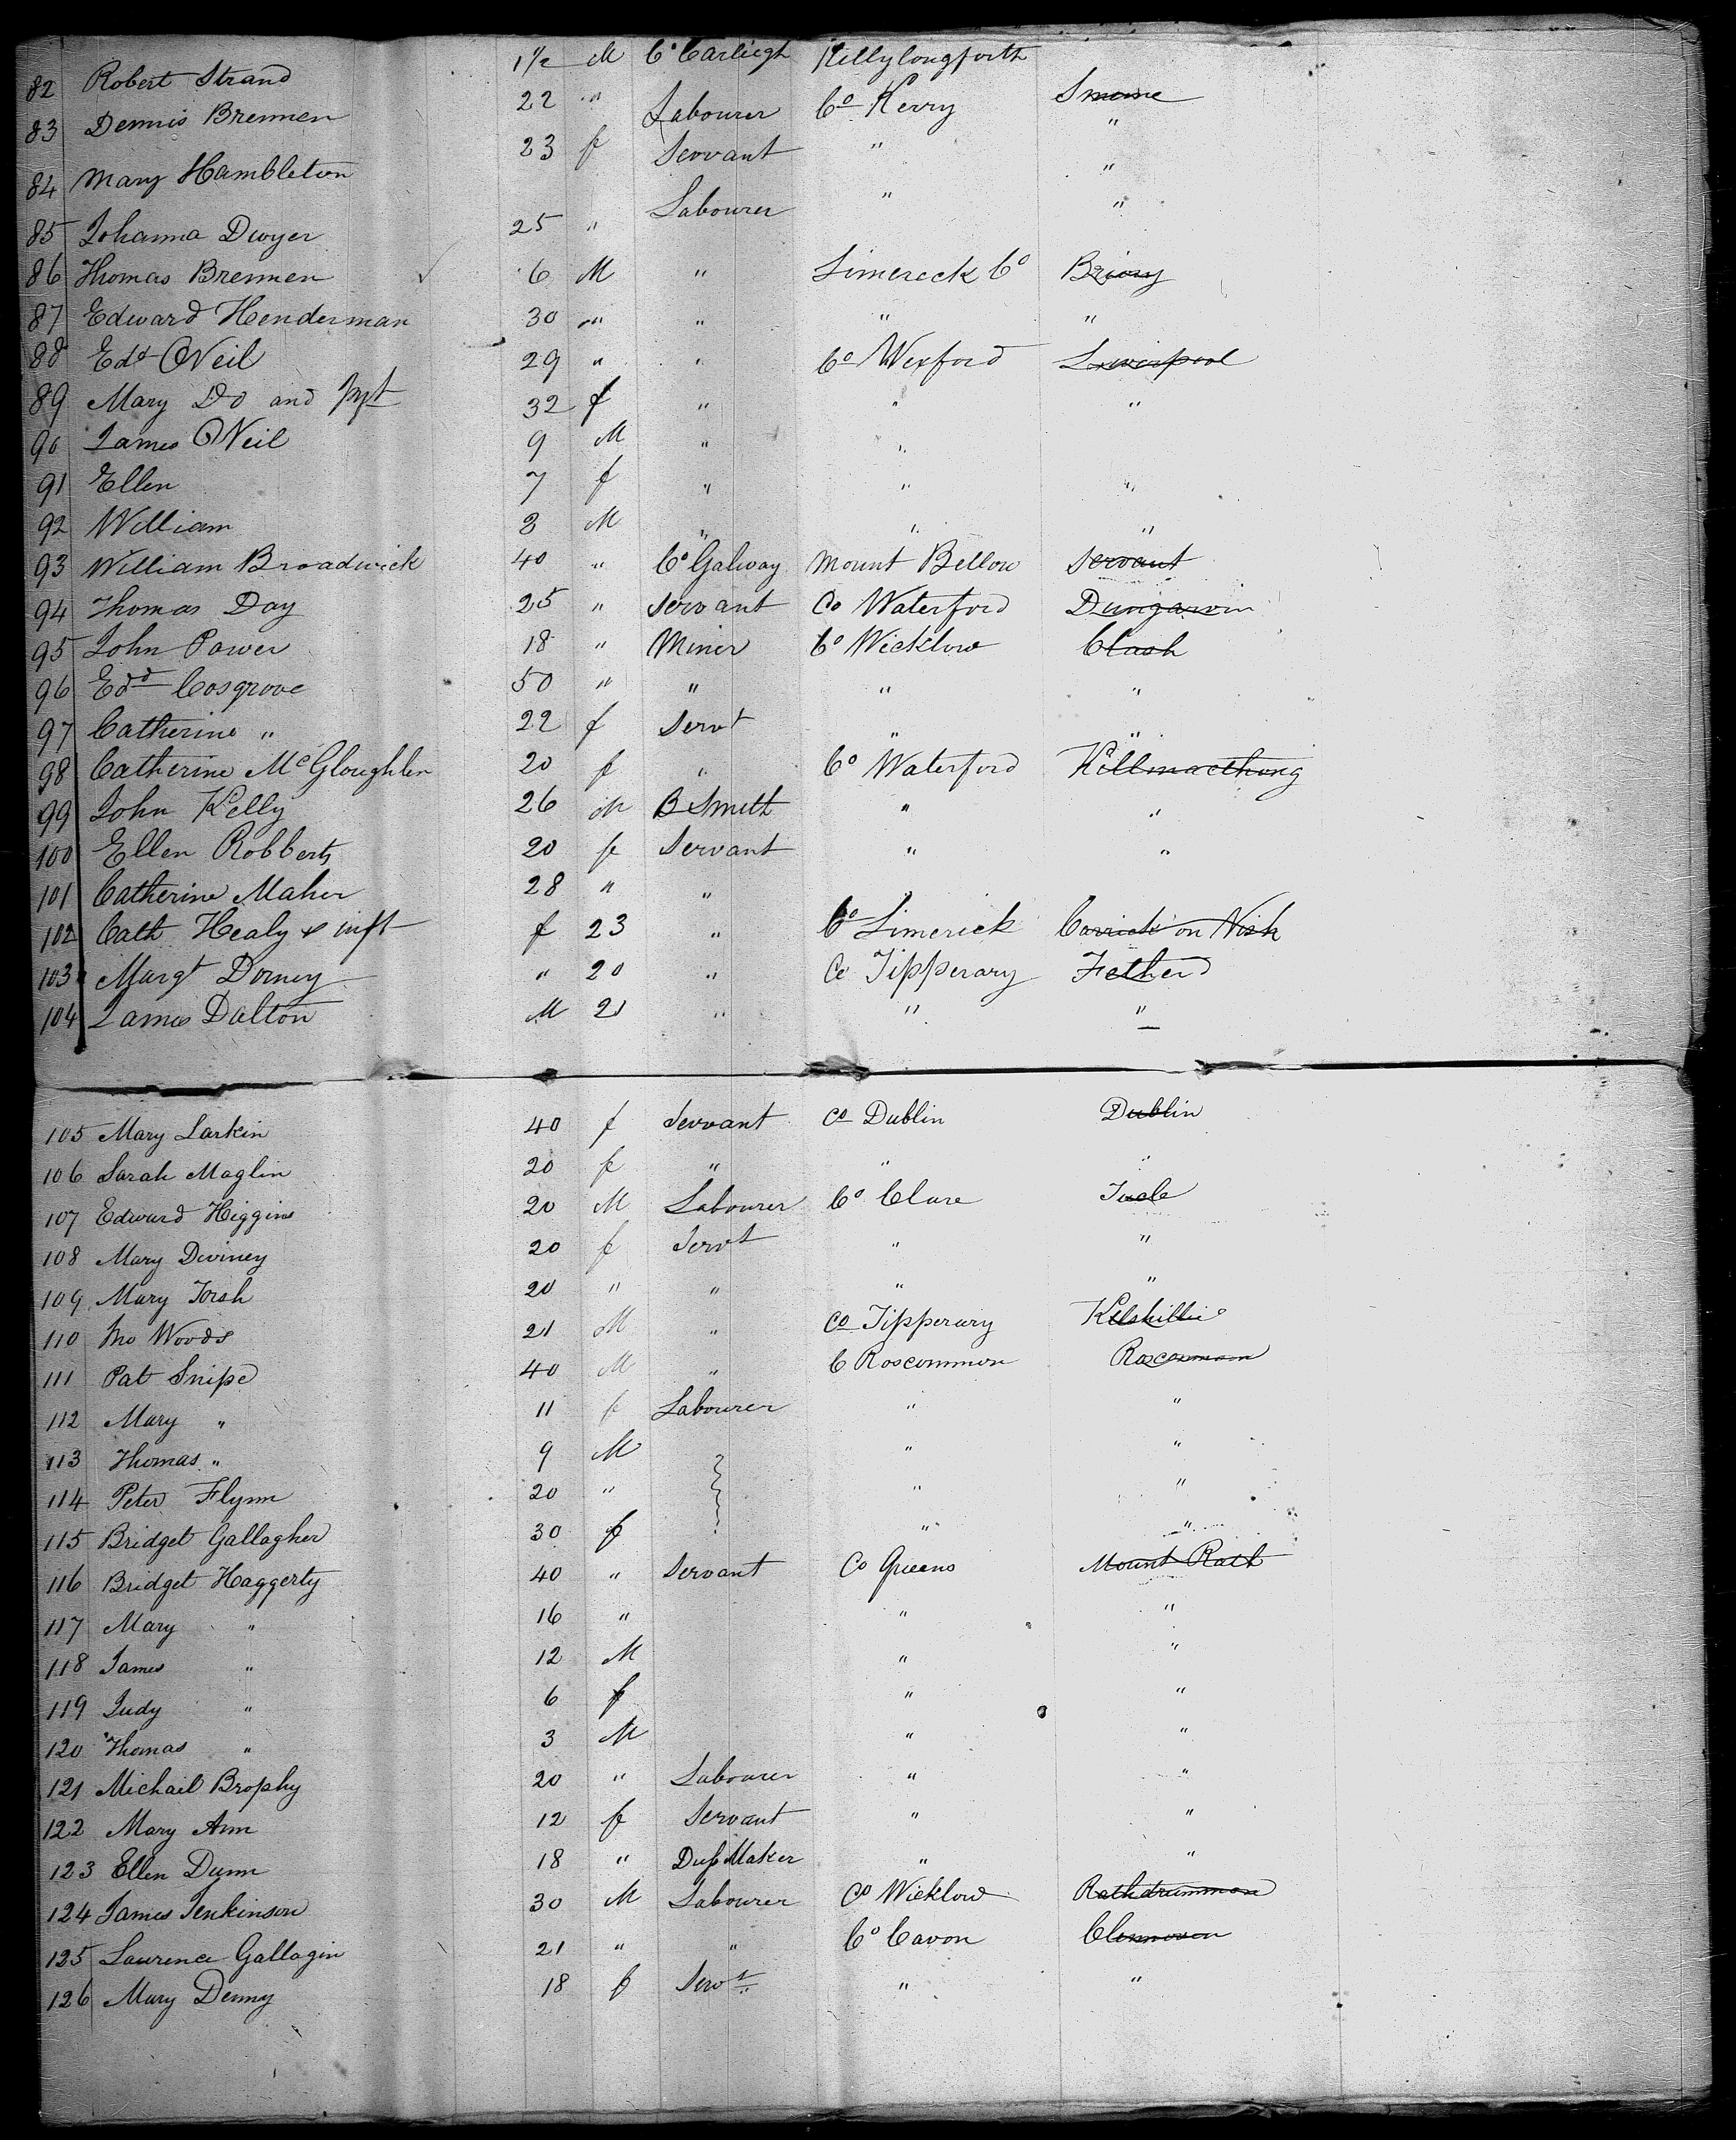 82 Robert Strand 1½ M Co Carliegh Kellylongforth
83 Dennis Brennen 22 " Labourer Co Kerry
84 Mary Hambleton 23 f Servant " "
85 Johanna Dwyer 25 " Labourer " "
86 Thomas Brennen 6 M " Limereck Co
87 Edward Henderman 30 " " " "
88 Edd ONeil 29 " " Co Wexford Liverpool
89 Mary Do and Inft 32 f " " "
90 James ONeil 9 M " "
91 Ellen 7 f " " "
92 William 3 M " " "
93 William Broadwick 40 " Co Galway Mount Bellow Servant
94 Thomas Day 25 " Servant Co Waterford Dungarvin
95 John Power 18 " Miner Co Wicklow Clash
96 Edd Cosgrove 50 " " " "
97 Catherine " 22 f Servt " "
98 Catherine McGloughlen 20 f " Co Waterford Killmacthong
99 John Kelly 26 M B Smith " "
100 Ellen Robberts 20 f Servant " "
101 Catherine Maher 28 " "
102 Cath Healy & inft f 23 " Co Limerick Carrick on Nish
103 Margt Dorney " 20 " Co Tipperary Fetherd
104 James Dalton M 21 " " "
105 Mary Larkin 40 f Servant Co Dublin Dublin
106 Sarah Maglin 20 f " " "
107 Edward Higgins 20 M Labourer Co Clare
108 Mary Deviney 20 f Servt " "
109 Mary Torsh 20 " " " "
110 Jno Woods 21 M " Co Tipperary Kelskillie
111 Pat Snipe 40 M " C Roscommon Roscommon
112 Mary " 11 f Labourer " "
113 Thomas " 9 M " "
114 Peter Flynn 20 " " "
115 Bridget Gallagher 30 f " "
116 Bridget Haggerty 40 " Servant Co Queens Mount Rath
117 Mary " 16 " " "
118 James " 12 M " "
119 Judy " 6 f " "
120 Thomas " 3 M " "
121 Michail Brophy 20 " Labourer " "
122 Mary Ann 12 f Servant " "
123 Ellen Dunn 18 " Dress Maker " "
124 James Jenkinson 30 M Labourer Co Wicklow Rathdrummon
125 Laurence Gallagin 21 " " Co Cavon
126 Mary Denny 18 f Servt " "